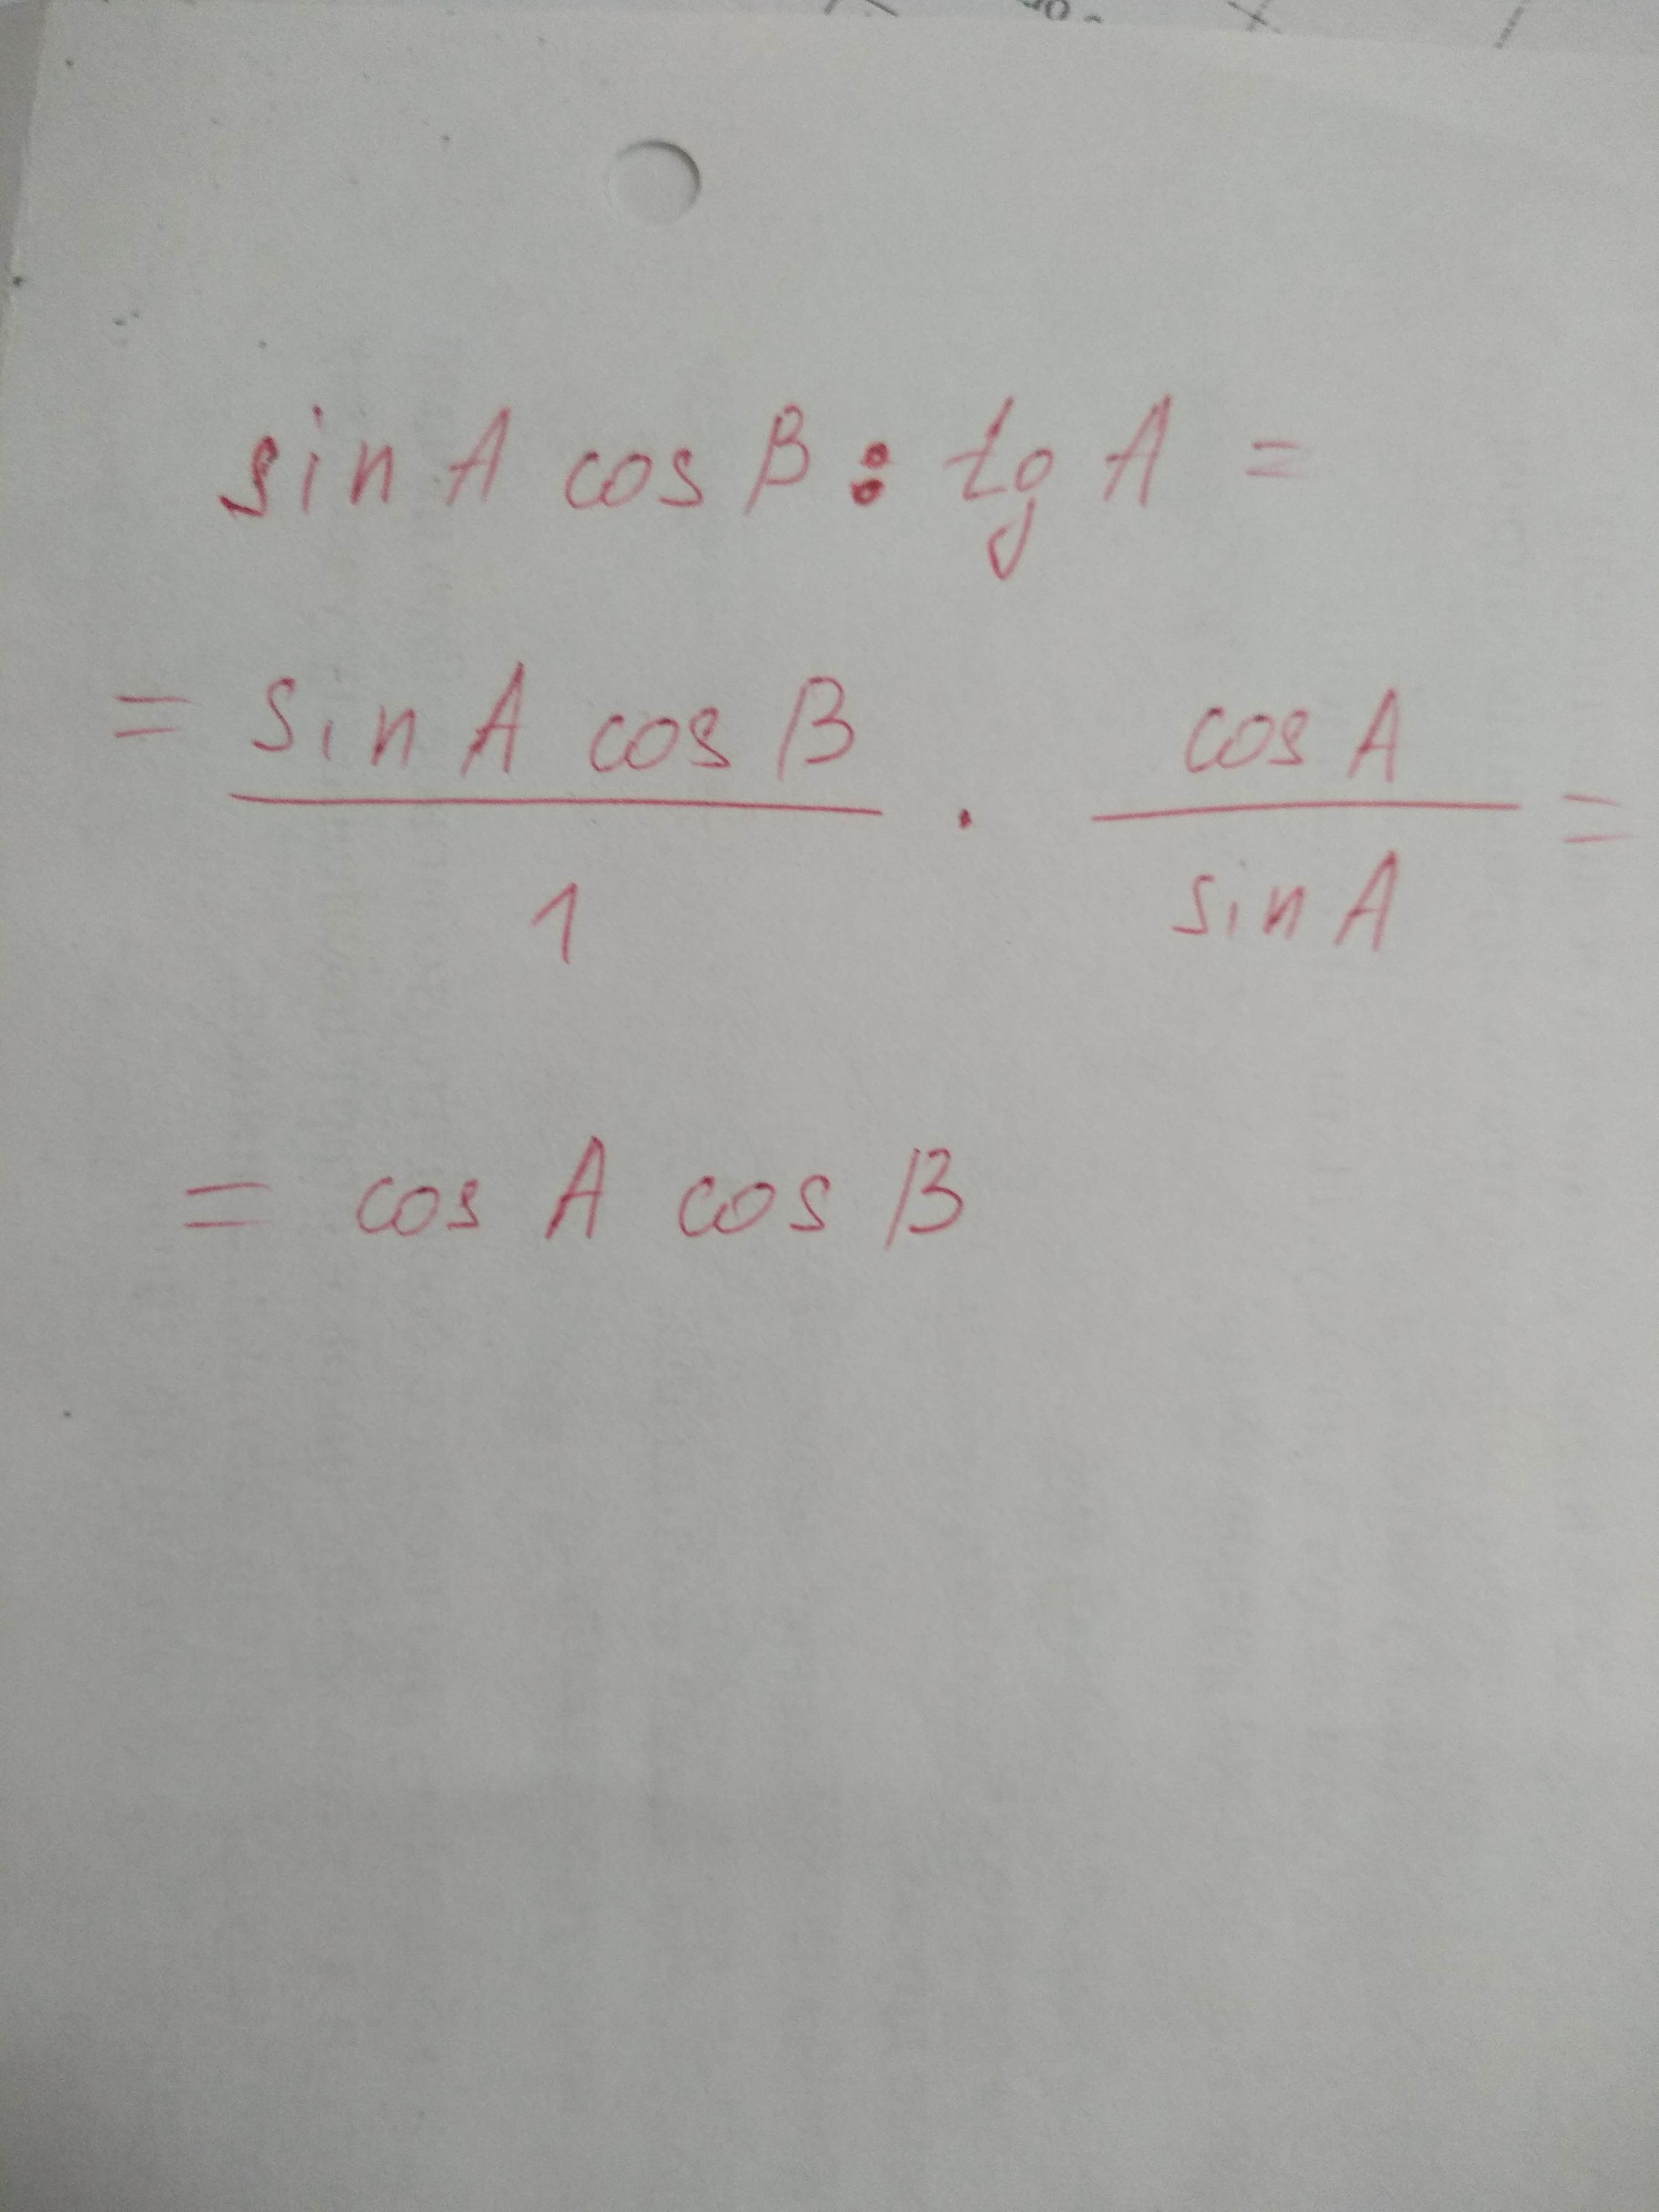 sin A cos B : tg A =
= sin A cos B / 1 · cos A / sin A =
= cos A cos B